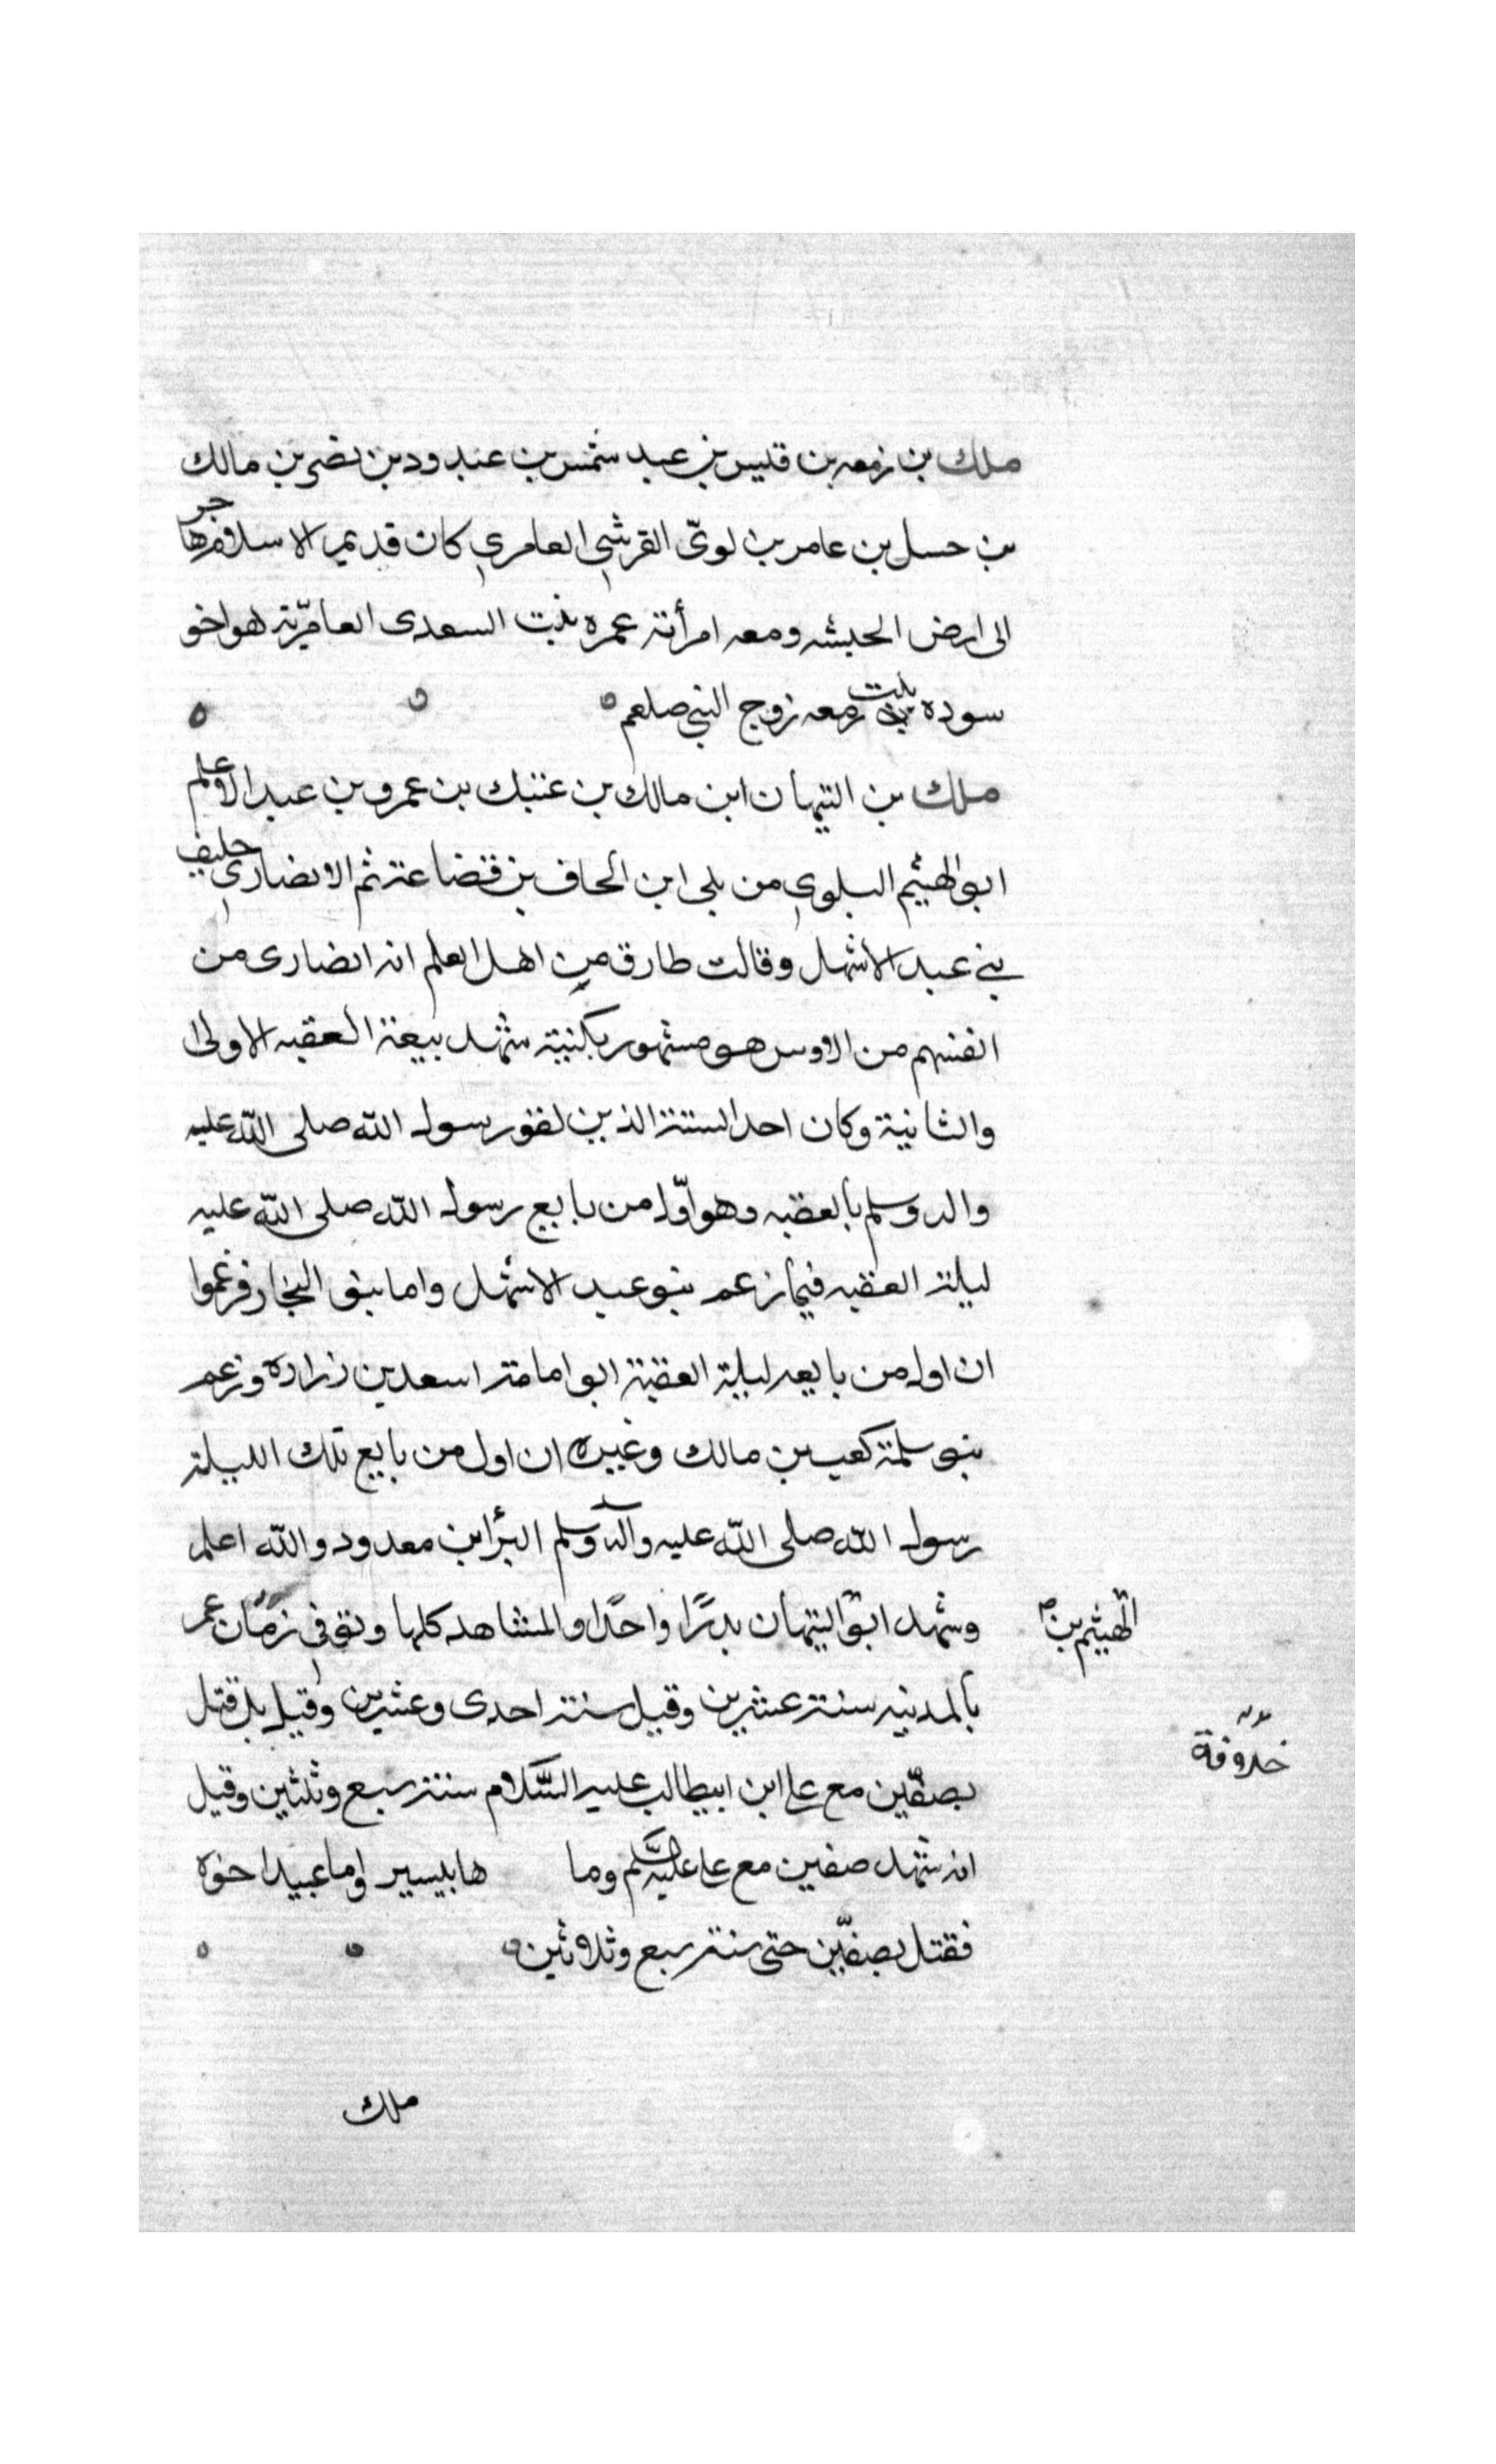 ملك بن زمعه بن قيس بن عبد شمس بن عبد ود بن نصر بن مالك
بن حسل بن عامر بن لويّ القرشي العامري كان قديم الاسلام هاجر
الى ارض الحبشه ومعه امرأته عمره بنت السعدى العامريّة هو اخو
سوده بنت زمعه زوج النبي صلعم
ملك بن التيهان ابن مالك بن عتيك بن عمرو بن عبد الاعلم
ابو الهيثم البلوي من بلى ابن الحاف بن قضاعة ثم الانصاري حليف
بني عبد الاشهل وقالت طارق من اهل العلم انه انصارى من
انفسهم من الاوس هو مشهور بكنيته شهد بيعة العقبه الاولى
والثانية وكان احد الستة الذين لقو رسول الله صلى الله عليه
واله وسلم بالعقبه وهو اوّل من بايع رسول الله صلى الله عليه
ليلة العقبه فيما زعم بنو عبد الاشهل واما بنو النجار فزعموا
ان اول من بايعه ليلة العقبة ابو امامة اسعد بن زراده وزعم
بنو سلمة كعب بن مالك وغيره ان اول من بايع تلك الليلة
رسول الله صلى الله عليه واله وسلم البرأ ابن معدود والله اعلم
وشهد ابو التيهان بدرًا واحدًا والمشاهد كلها وتوفي زمان عمر
الهيثم بن
بالمدينه سنة عشرين وقيل سنة احدى وعشرين وقيل بل قتل
بصفّين مع على ابن ابيطالب عليه السّلام سنة سبع وثلثين وقيل
انه شهد صفين مع على عليه السّلم وما ها بيسير واما عبيد اخوه
فقتل بصفّين حتى سنة سبع وثلاثين
ملك